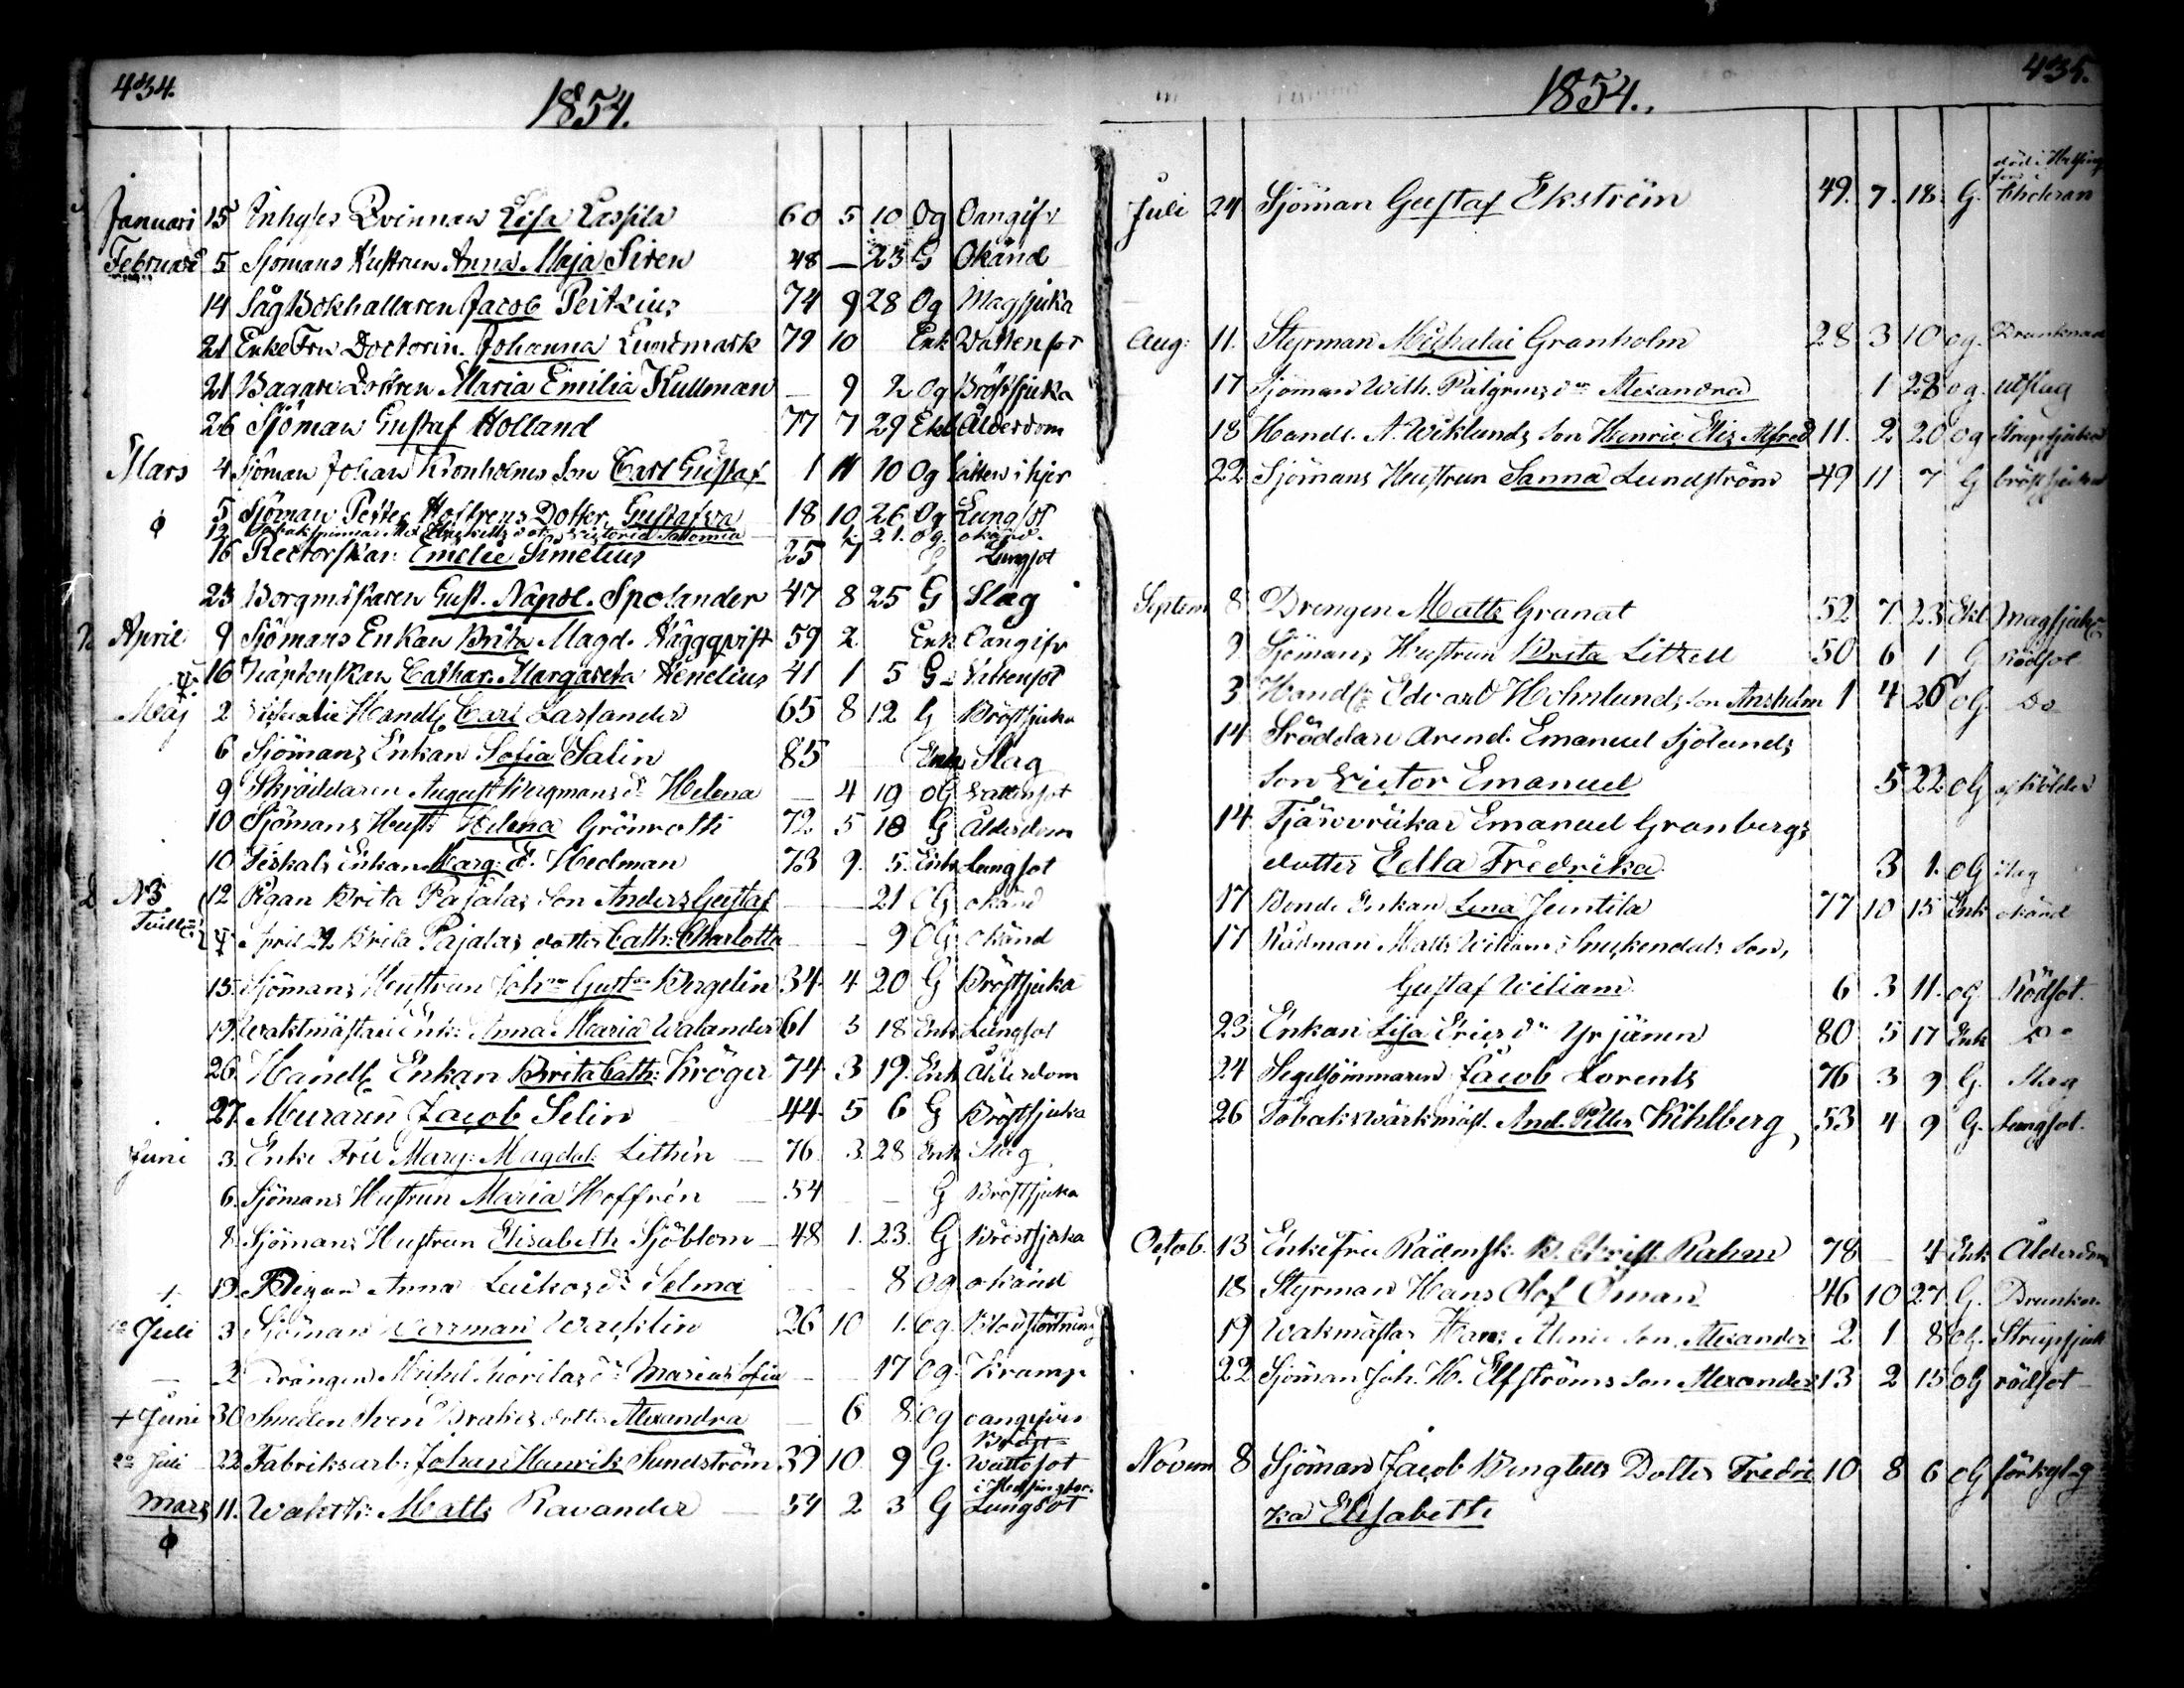 434.
1854.
Januari 15 Inhyses Qvinnan Lisa Lassila 60 5 10 Og Oangifv
Februari 5 Sjömans Hustrun Anna Maja Siren 48 — 23 G Okänd
14 Såg Bokhallaren Jacob Peitzius 74 9 28 Og Magsjuka
21 Enke Fru Doctorin. Johanna Lundmark 79 10 Enk Vattensot
21 Bagare Dottren Maria Emilia Kullman — 9 2 Og Bröstsjuka
26 Sjöman Gustaf Holland 77 7 29 Ekl Ålderdom
Mars 4 Sjöman Johan Kronholms Son Carl Gustaf 1 11 10 Og vatten i hjer
ϕ 5 Sjöman Petter Hoffrens Dotter Gustafva 18 10 26 Og Lungsot
12 Victoria 1. 21. og. okänd.
16 Rectorskan Emelie Simelius 25 7 G Lungsot
23 Borgmästaren Gust. Napol. Spolander 47 8 25 G Slag
April 9 Sjömans Enkan Brita Magd. Häggqvist 59 2. Enk Oangifv
16 Kaptenskan Cathar. Margareta Henelius 41 1 5 G Vattensot
Maj 2 Handl Carl Laslander 65 8 12 G Bröstsjuka
6 Sjömans Enkan Sofia Salin 85 Enk Slag
9 Skräddaren August Bergmans dr Helena — 4 19 OG Vattensot
10 Sjömans Hust: Helena Grönroth 72 5 18 G Ålderdom
10 Fiskals Enkan Marg: E. Hedman 73 9. 5. Enk Lungsot
N3 12 Pigan Brita Pajalas Son Anders Gustaf — — 21 OG okänd
Tvill: April 29. Brita Pajalas dotter Cath: Charlotta — — 9 OG okänd
15. Sjömans Hustrun Johna Gustva Bergelin 34 4 20 G Bröstsjuka
19. Waktmästare Enk: Anna Maria Walander 61 5 18 Enk Lungsot
26. Handl Enkan Brita Cath: Kröger 74 3 19. Enk Ålderdom
27. Muraren Jacob Selin 44 5 6 G Bröstsjuka
Juni 3. Enke Fru Marg: Magdal: Lithén — 76. 3. 28 Enk Slag
6. Sjömans Hustrun Maria Hoffrén — 54 — — G Bröstsjuka
8. Sjömans Hustrun Elisabeth Sjöblom 48 1. 23. G Bröstsjuka
+ 13. Pigan Anna dr Selma — — 8 Og okänd
Juli 3 Sjöman Herrman Wacklin 26 10 1. Og. Blodstörtning
— 2 Drängen Michel dr Maria Sofia — — 17 Og. Kramp
+ Juni 30 Smeden Sven Brakes dotter Alexandra — 6 8. Og oangifven
Bröst
Juli 22 Fabriksarb: Johan Henrik Sundström 39 10. 9 G. Wattusot
i Helsingfor.
Mars 11. Waktk: Matts Ravander — 54 2 3 G Lungsot
ϕ
435.
1854.
död i Helsing
fors i
Juli 24 Sjöman Gustaf Ekström 49. 7. 18. G. Choleran
Aug: 11. Styrman Michalai Granholm 28 3 10 og. Drunknad
17 Sjöman Wilh. Palgrens dr Alexandra 1 28 og. utslag
18 Handl. A. Wiklunds Son Henric Elis Alfred 11. 2 20 og Strupsjuka
22 Sjömans Hustrun Sanna Lundström 49 11 7 G bröstsjuka
Septem 8 Drengen Matts Granat 52 7. 23 Ekl Magsjuka
9. Sjömans Hustrun Brita Litzell 50 6 1 G Rödsot
3 Handl: Edvard Holmlunds Son Anshelm 1 4 26 OG Do
14 Sräddare Arend. Emanuel Sjölunds
Son Victor Emanuel 5 22 OG af kölder
14 Tjärvräkar Emanuel Granbergs
dotter Edla Fredrika. 3 1. OG slag
17 Bonde Enkan Lena Juntila 77 10 15 Enk okänd
17 Rådman Matts Wiliam Snickendals Son,
Gustaf Wiliam. 6 3 11. OG. Rödsot.
23 Enkan Lisa Ericsdr Yrjänen 80 5 17 Enk Do
24 Segelsömmaren Jacob Lorents 76 3 9 G. Slag
26 Tobakswärkmäst. And. Petter Kihlberg, 53 4 9 G. Lungsot.
Octob. 13 Enke Fru Rådmsk. B. Christ. Rahm 78 — 4 Enk Ålderdom
18 Styrman Hans Olof Öman 46 10 27 G. Drunkn.
19 Wakmästar Hans Alenii Son. Alexander 2 1 8 OG. Strupsjuk
22 Sjöman Joh. H. Elfströms Son Alexander 13 2 15 OG rödsot
Novem 8 Sjöman Jacob Bengtells Dotter Fredri 10 8 6 OG förkyl-g
ka Elisabeth